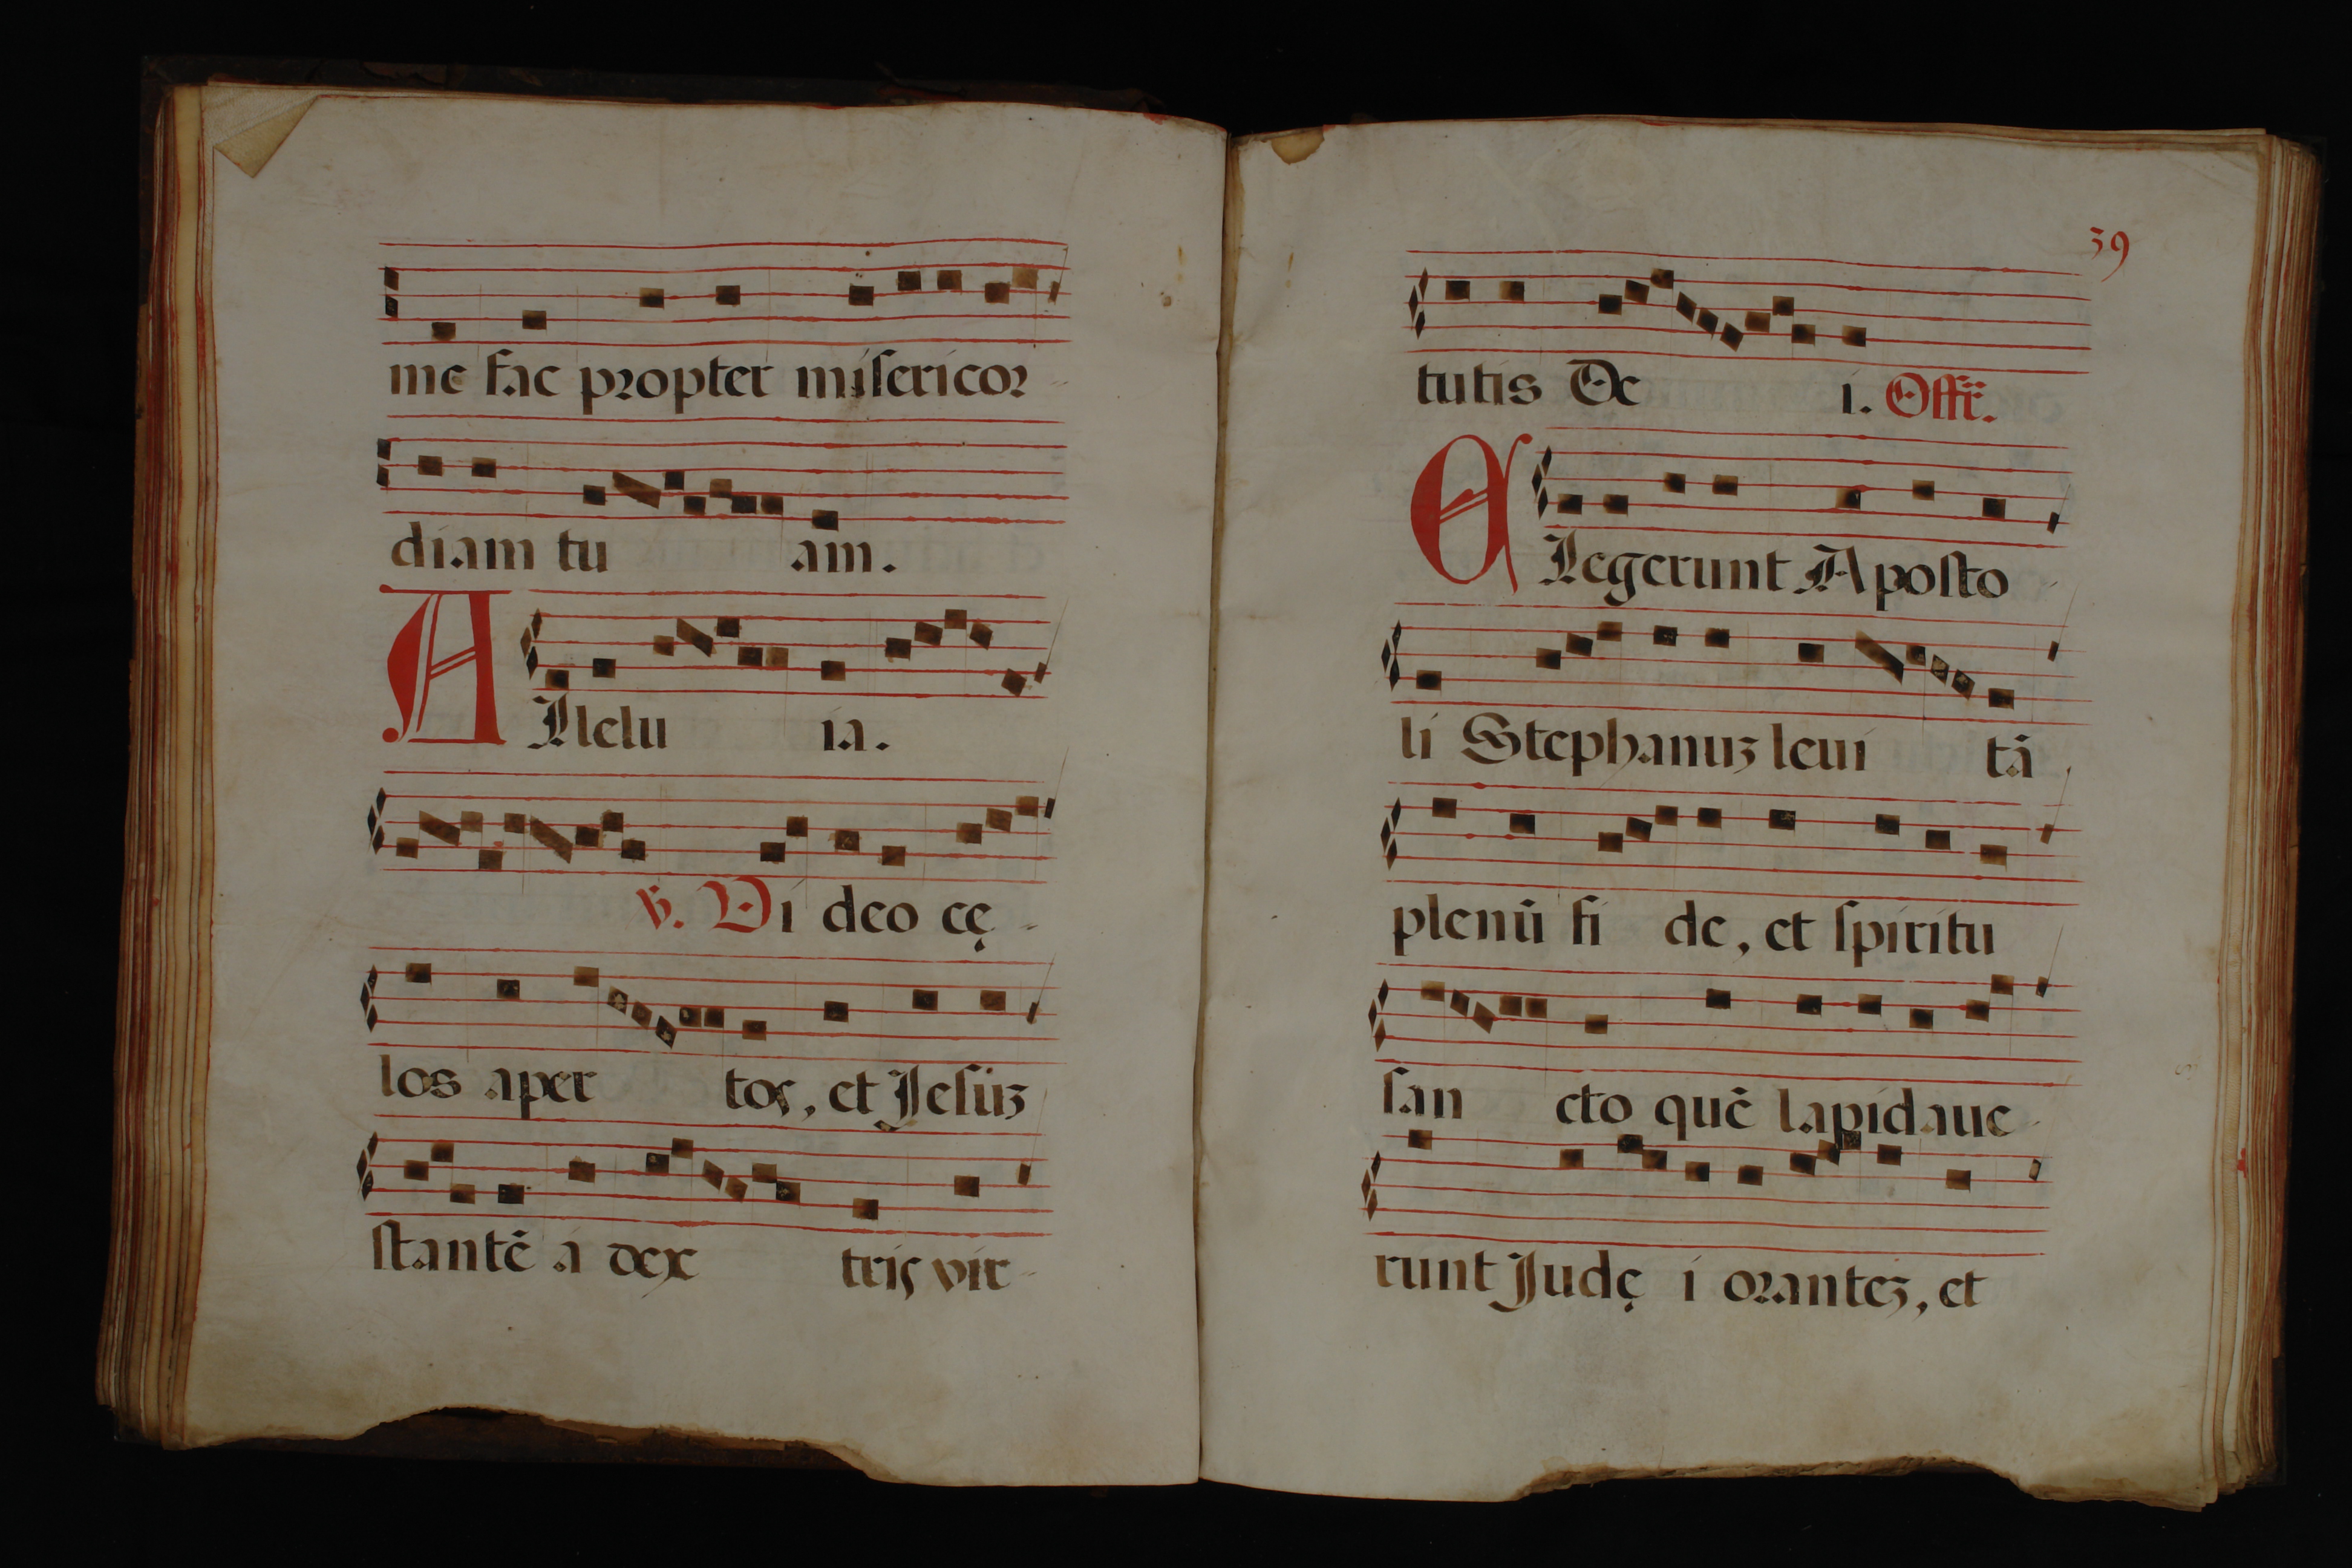 me fac propter misericor-
diam tu am.
Allelu ia.
℣. Vi deo cę-
los aper tos, et Jesuʒ
stantē á dex tris vir-
39
tutis De i. Offr̄.
Elegerunt Aposto-
li Stephanuʒ leui tā
plenū fi de, et spiritu
san cto quē lapidaue-
runt Judę i oranteʒ, et